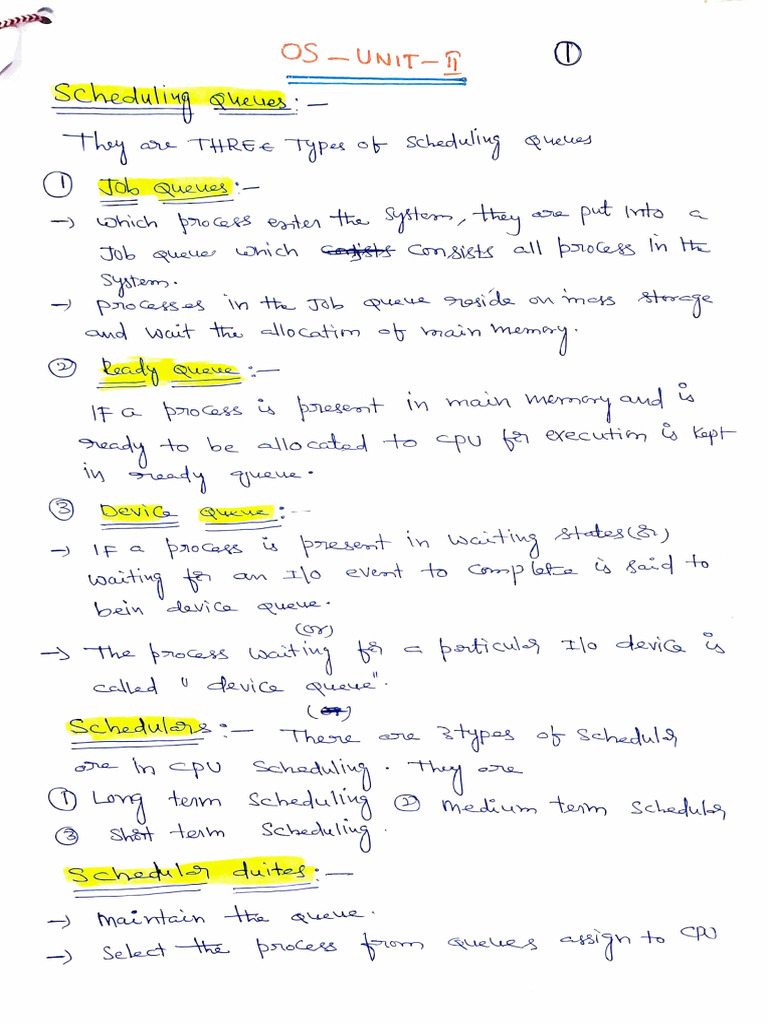 OS - UNIT - II ①
Scheduling Queues:-
They are THREE Types of Scheduling Queues
① Job Queues:-
→ which process enter the system, they are put into a
Job queue which consists consists all process in the
system.
→ processes in the Job queue reside on mass storage
and wait the allocation of main memory.
② Ready Queue:-
IF a process is present in main memory and is
ready to be allocated to CPU for execution is kept
in ready queue.
③ Device Queue:--
→ IF a process is present in waiting states(or)
waiting for an I/o event to complete is said to
bein device queue.
(or)
→ The process waiting for a particular I/o device is
called "device queue".
(or)
Schedulars:- There are 3types of Schedular
are in CPU Scheduling. They are
① Long term Scheduling ② Medium term Schedular
③ Short term Scheduling.
Schedular duites:-
→ Maintain the queue.
→ Select the process from queues assign to CPU